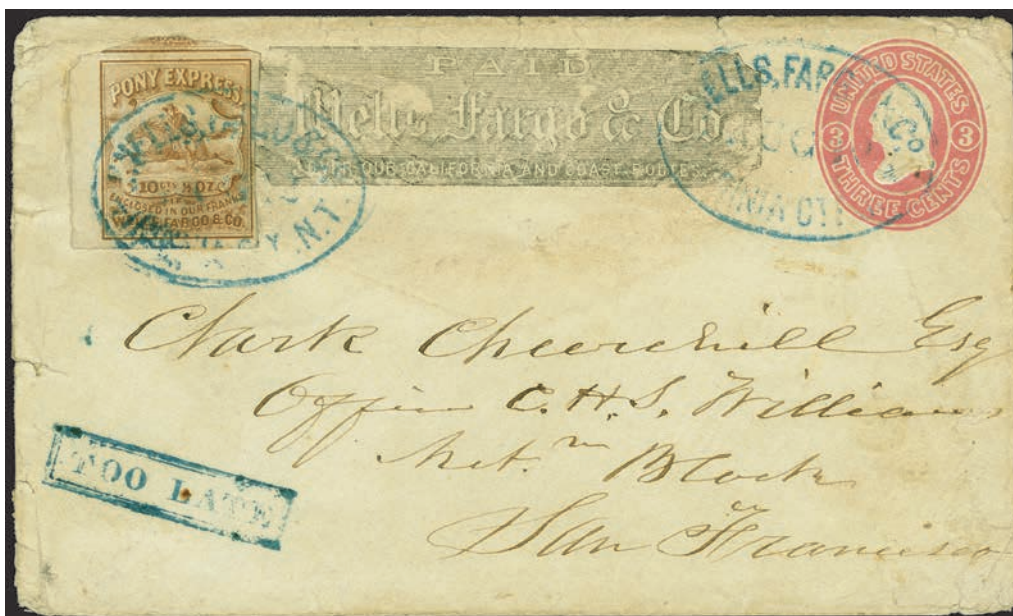 PONY EXPRESS.
10 Cts ½ OZ
ENCLOSED IN OUR FRANKS
WELLS, FARGO & CO.
PAID
Wells Fargo & Co.
OUR CALIFORNIA AND COAST ROUTES.
WELLS, FARGO & Co.
VIRGINIA CITY N.T.
ELLS, FARG & Co.
GINIA CITY
UNITED STATES
3 3
THREE CENTS
Clark Churchill Esq
Office C. H. S. Williams
Met.n Block
San Francisco
TOO LATE